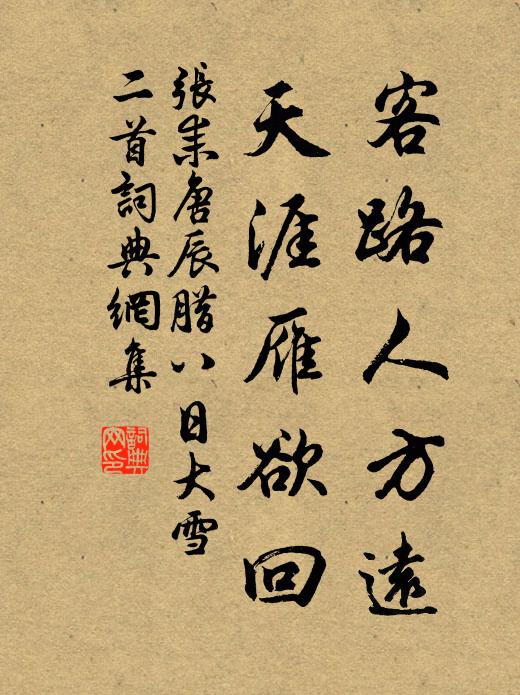 客路人方遠
天涯雁欲回
張耒庚辰腊八日大雪
二首詞典網集
詞典
网印